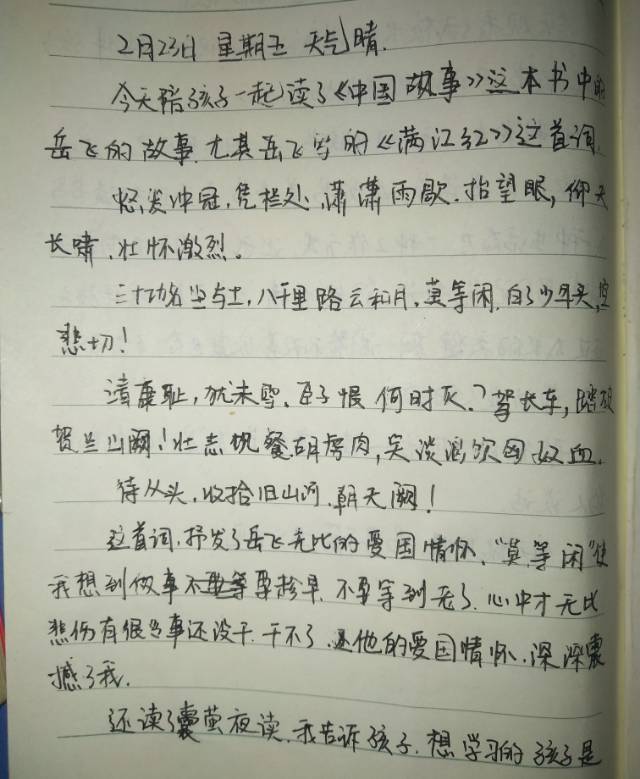 2月23日 星期五 天气晴.
今天陪孩子一起读了《中国故事》这本书中的
岳飞的故事.尤其岳飞写的《满江红》这首词
怒发冲冠,凭栏处,潇潇雨歇.抬望眼,仰天
长啸.壮怀激烈。
三十功名尘与土,八千里路云和月,莫等闲.白了少年头,空
悲切!
靖康耻,犹未雪、臣子恨何时灭.?驾长车,踏破
贺兰山阙!壮志饥餐胡虏肉,笑谈渴饮匈奴血.
待从头,收拾旧山河,朝天阙!
这首词,抒发了岳飞无比的爱国情怀."莫等闲"使
我想到做事不要等要趁早.不要等到老了.心中才无比
悲伤有很多事还没干.干不了.他的爱国情怀.深深震
撼了我.
还读了囊萤夜读.我告诉孩子.想学习的孩子是